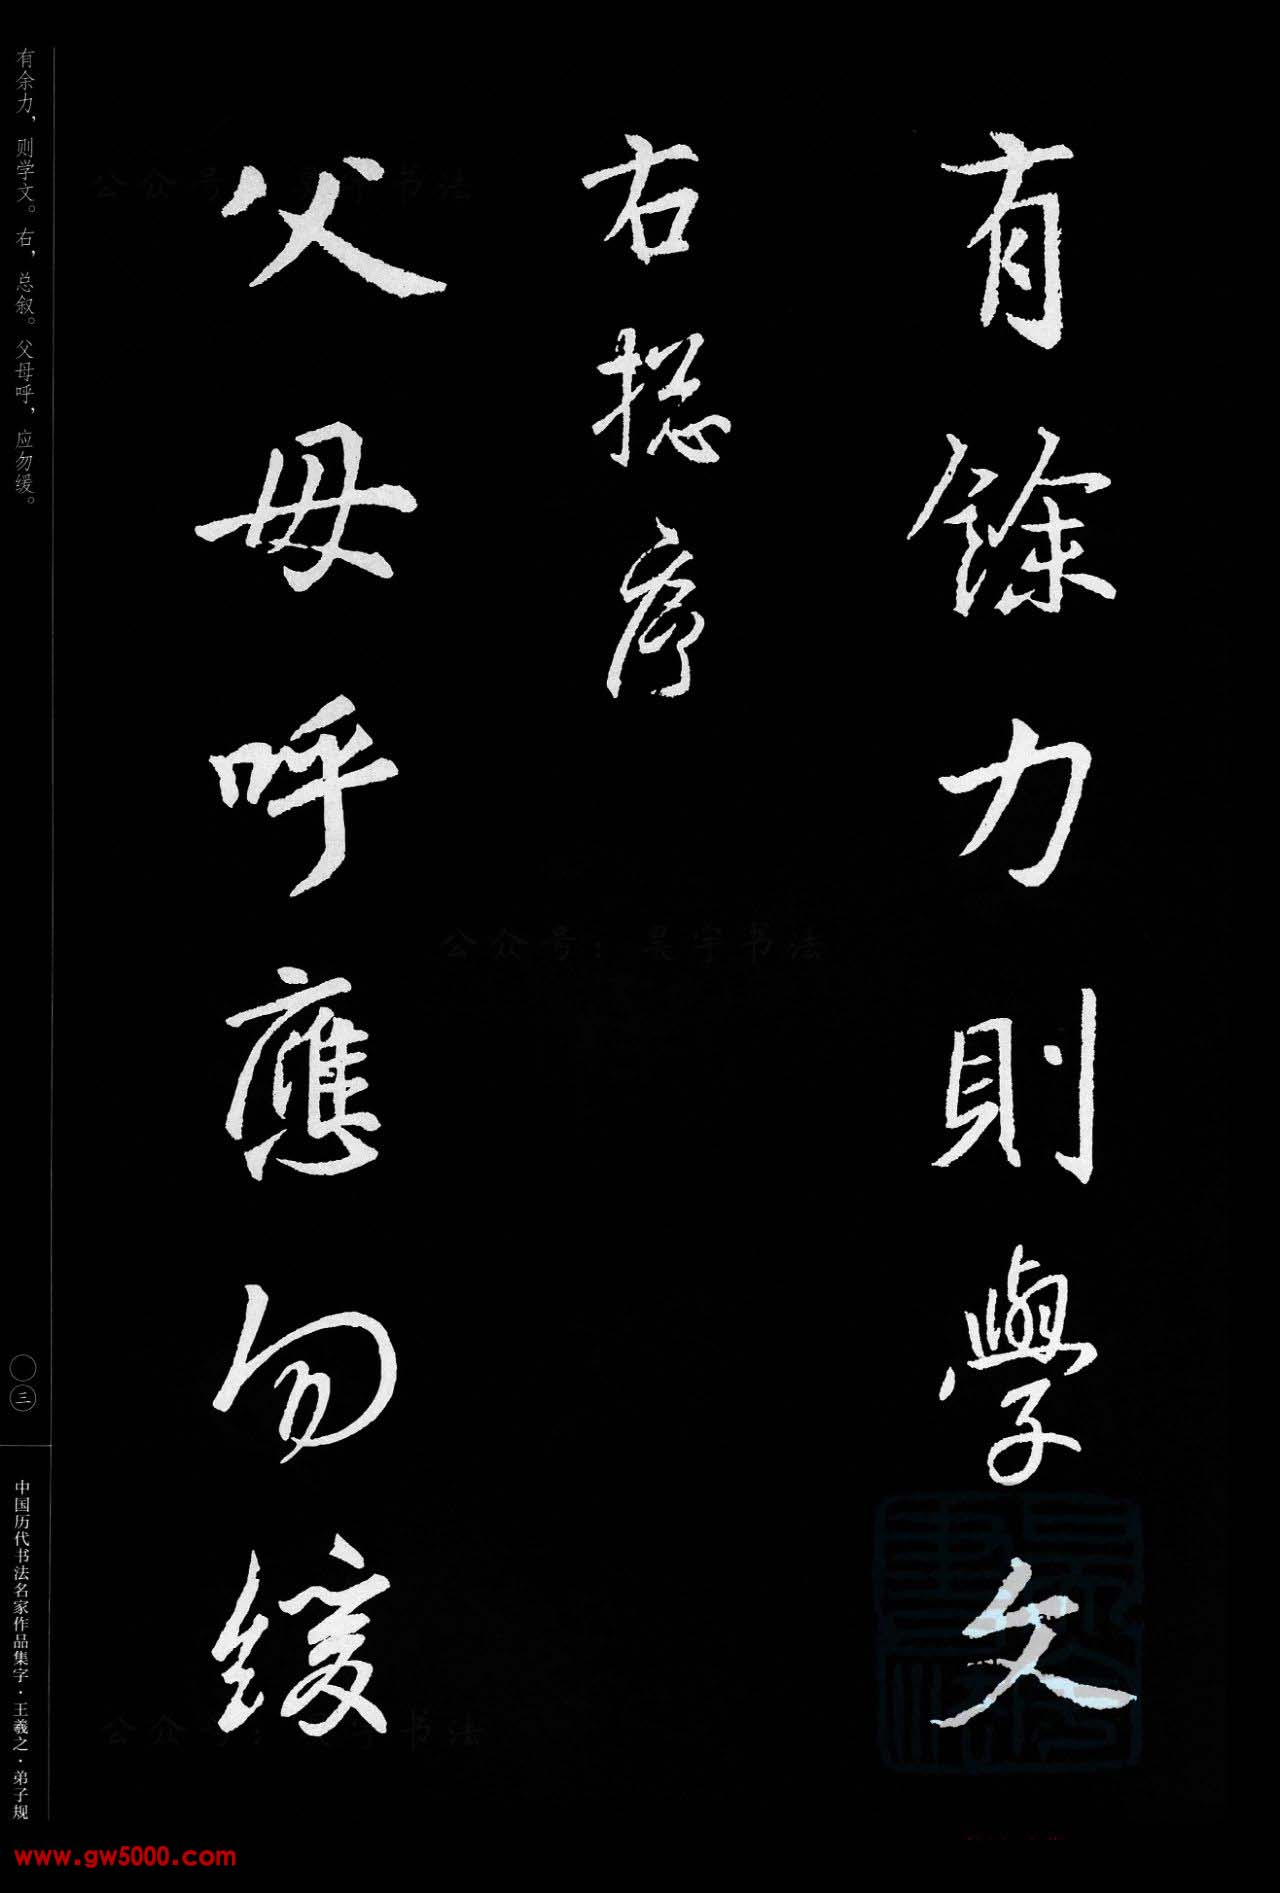 有餘力則學文
右捴序
父母呼應勿緩
有余力，则学文。右，总叙。父母呼，应勿缓。
〇三
中国历代书法名家作品集字·王羲之·弟子规
公众号：昊宇书法
www.gw5000.com